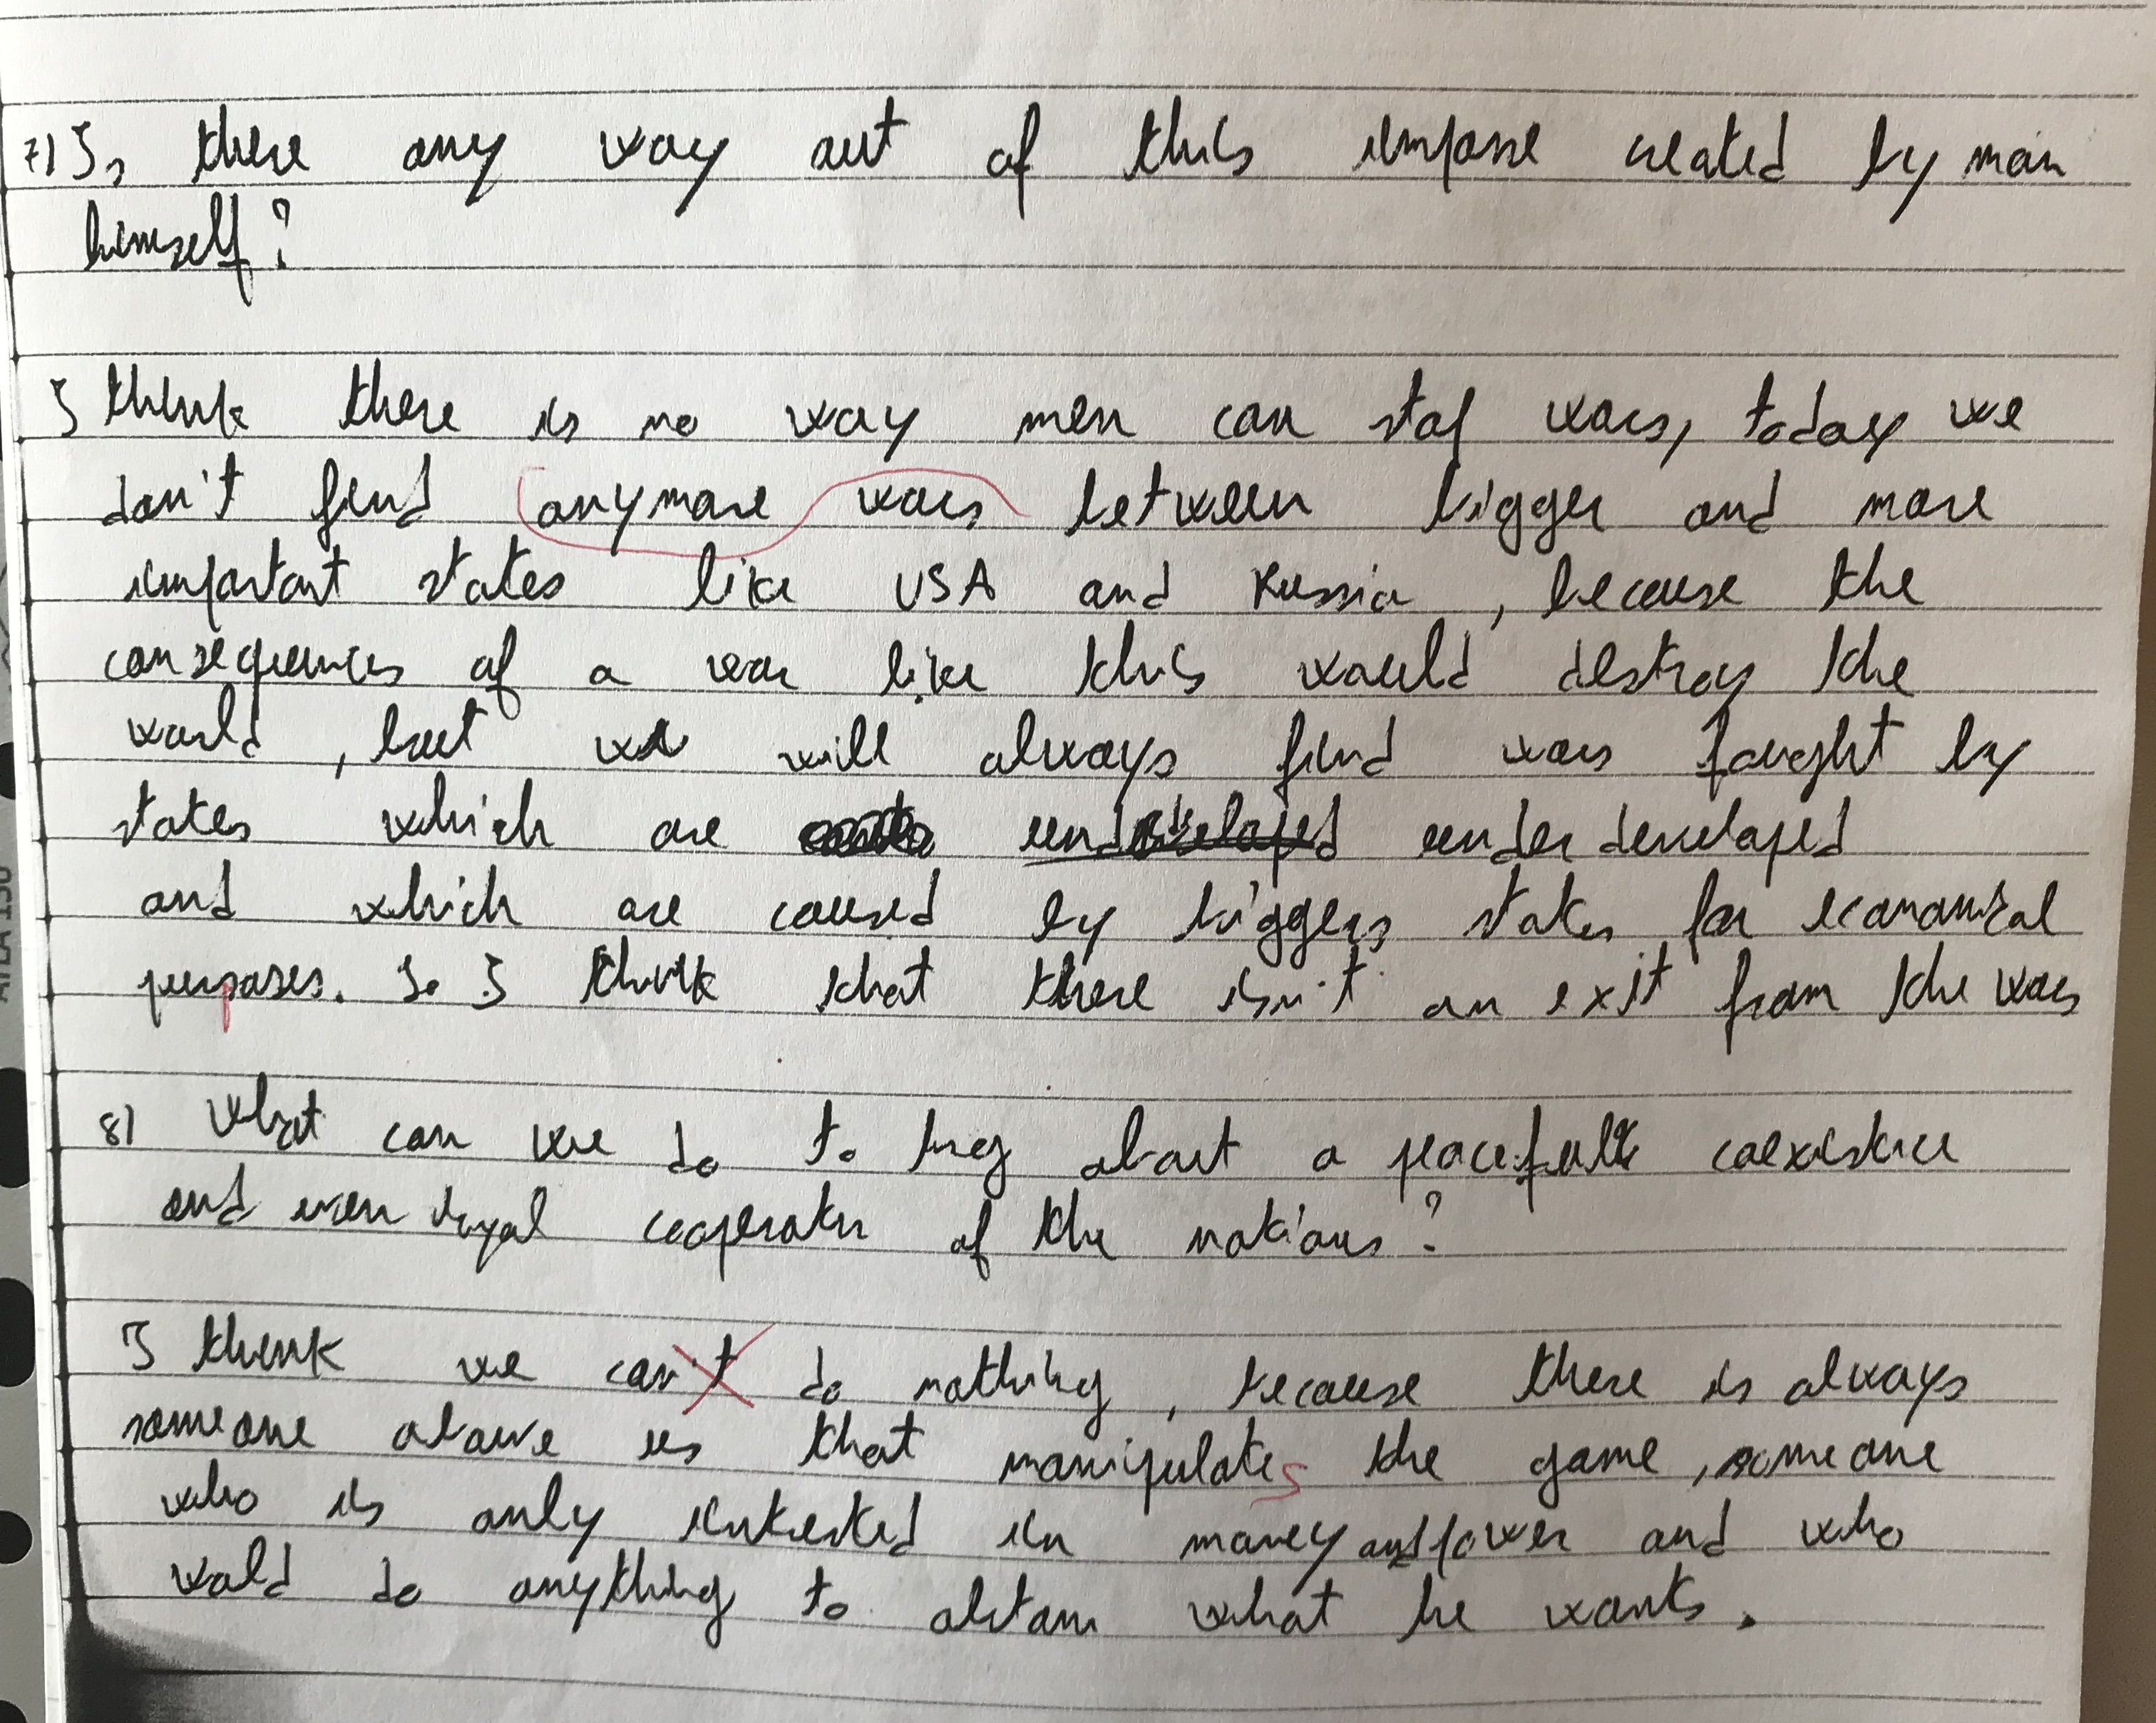 7) Is there any way out of this impasse created by man
himself?
I think there is no way men can stop wars, today we
don't find anymore wars between bigger and more
important states like USA and Russia, because the
consequences of a war like this would destroy the
world, but we will always find wars fought by
states which are underdeveloped
and which are caused by biggers states for economical
purposes. So I think that there isn't an exit from the wars
8) What can we do to about a peacefull coexistence
and even loyal of the nations?
I think we can't do nothing, because there is always
someone above us that manipulates the game, someone
who is only interested in money and power and who
wold do anything to obtain what he wants.